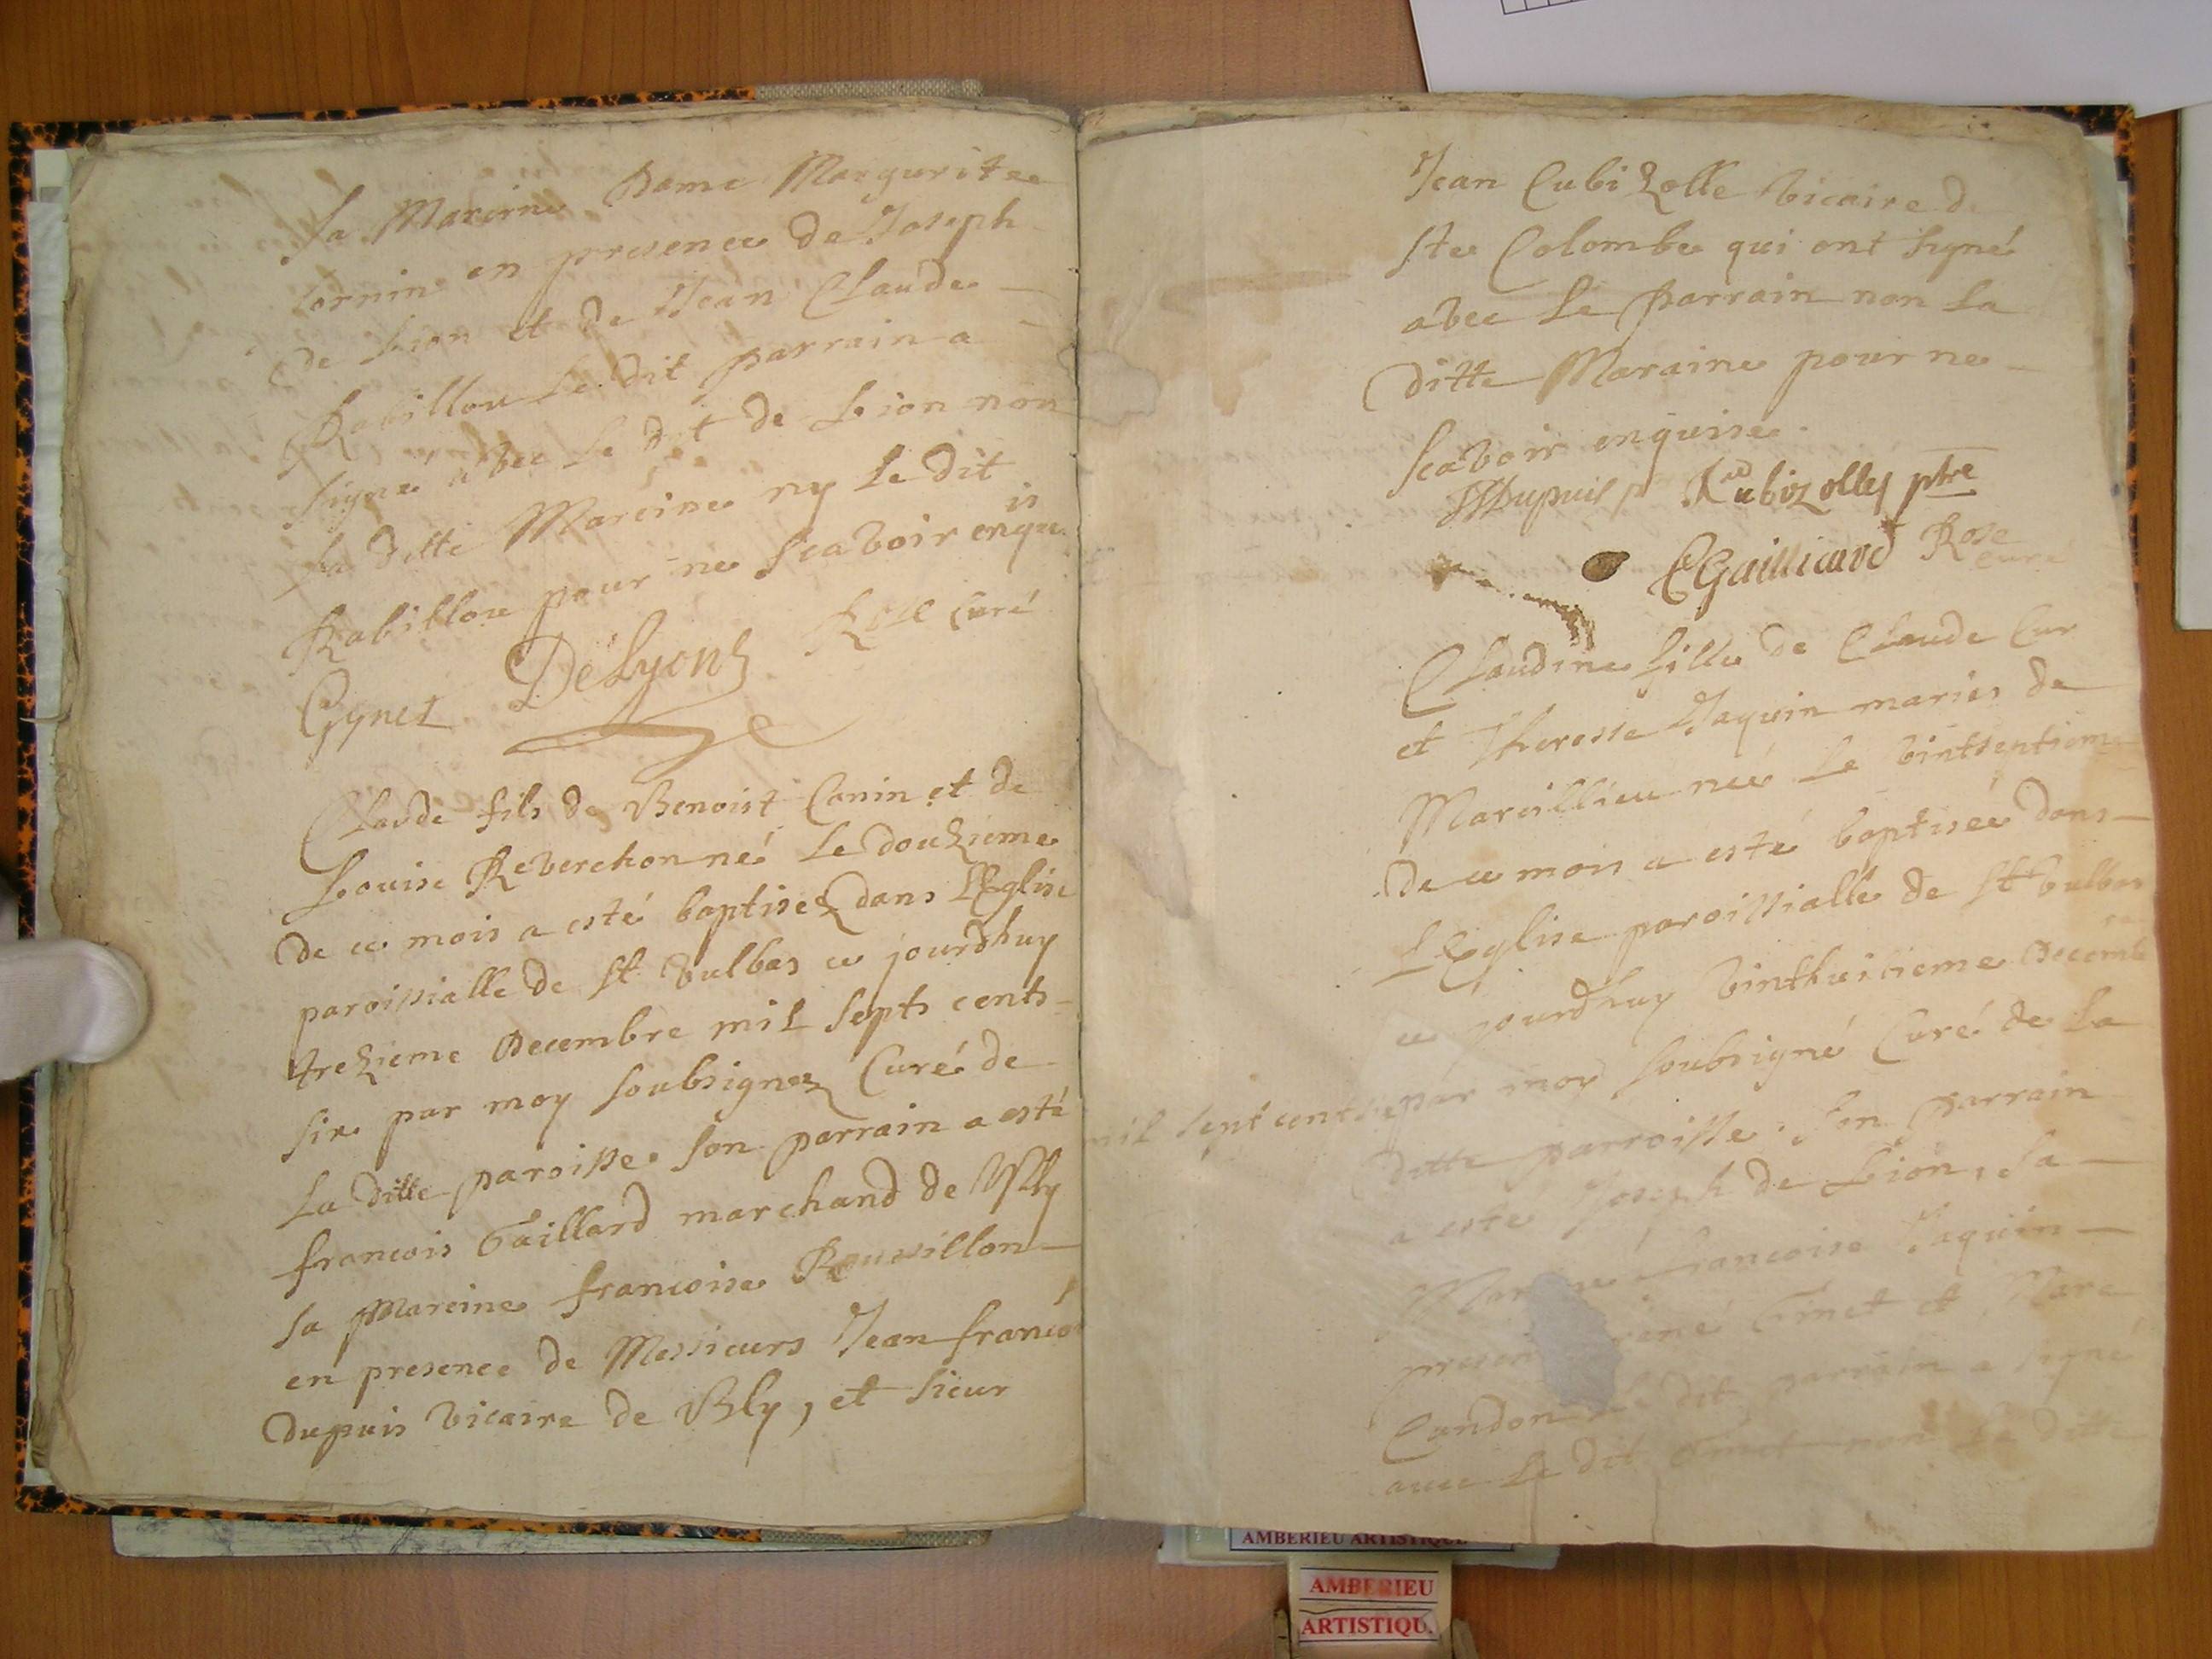 La Mareine Dame Marguritte
cornin en presence de Joseph
de Lion et de Jean Claude
Rabillou le dit parrain a
signé avec le dit de Lion non
la ditte Mareine ny le dit
Rabillou pour ne scavoir enquis
Gynet DeLyons Rose curé
Claude fils de Benoist Conin et de
Louise Reverchon né le douzieme
de ce mois a esté baptisez dans L'Eglise
paroissialle de St Vulbas ce jourdhuy
trezieme Decembre mil septs cents
six par moy soubsignez Curé de
la ditte paroisse son parrain a esté
francois Gaillard marchand de
sa Mareine francoise Roussillon
en presence de Messieurs Jean francois
Dupuis vicaire de Bly, et sieur
Jean Cubizolle vicaire de
Ste Colombe qui ont signé
avec le parrain non la
ditte Maraine pour ne
scavoir enquise.
JfDupuis Cubizolles ptre
Gailliard Rose
curé
Claudine fille de Claude Cur
et Theresse Jaquin maries de
Marcillieu neé le vintseptieme
de ce mois a esté baptiseé dans
L'Eglise paroissialle de St Vulbas
ce jourdhuy vinthuitieme Decemb
mil sept cent six par moy soubsigné Curé de la
ditte parroisse. Son parrain
a esté Joseph de Lion, sa
Mareine francoise Jaquin
presen rené Ginet et Marc
Candon le dit parrain a signé
avec le dit Ginet non la ditte
AMBERIEU ARTISTIQUE
AMBERIEU
ARTISTIQU